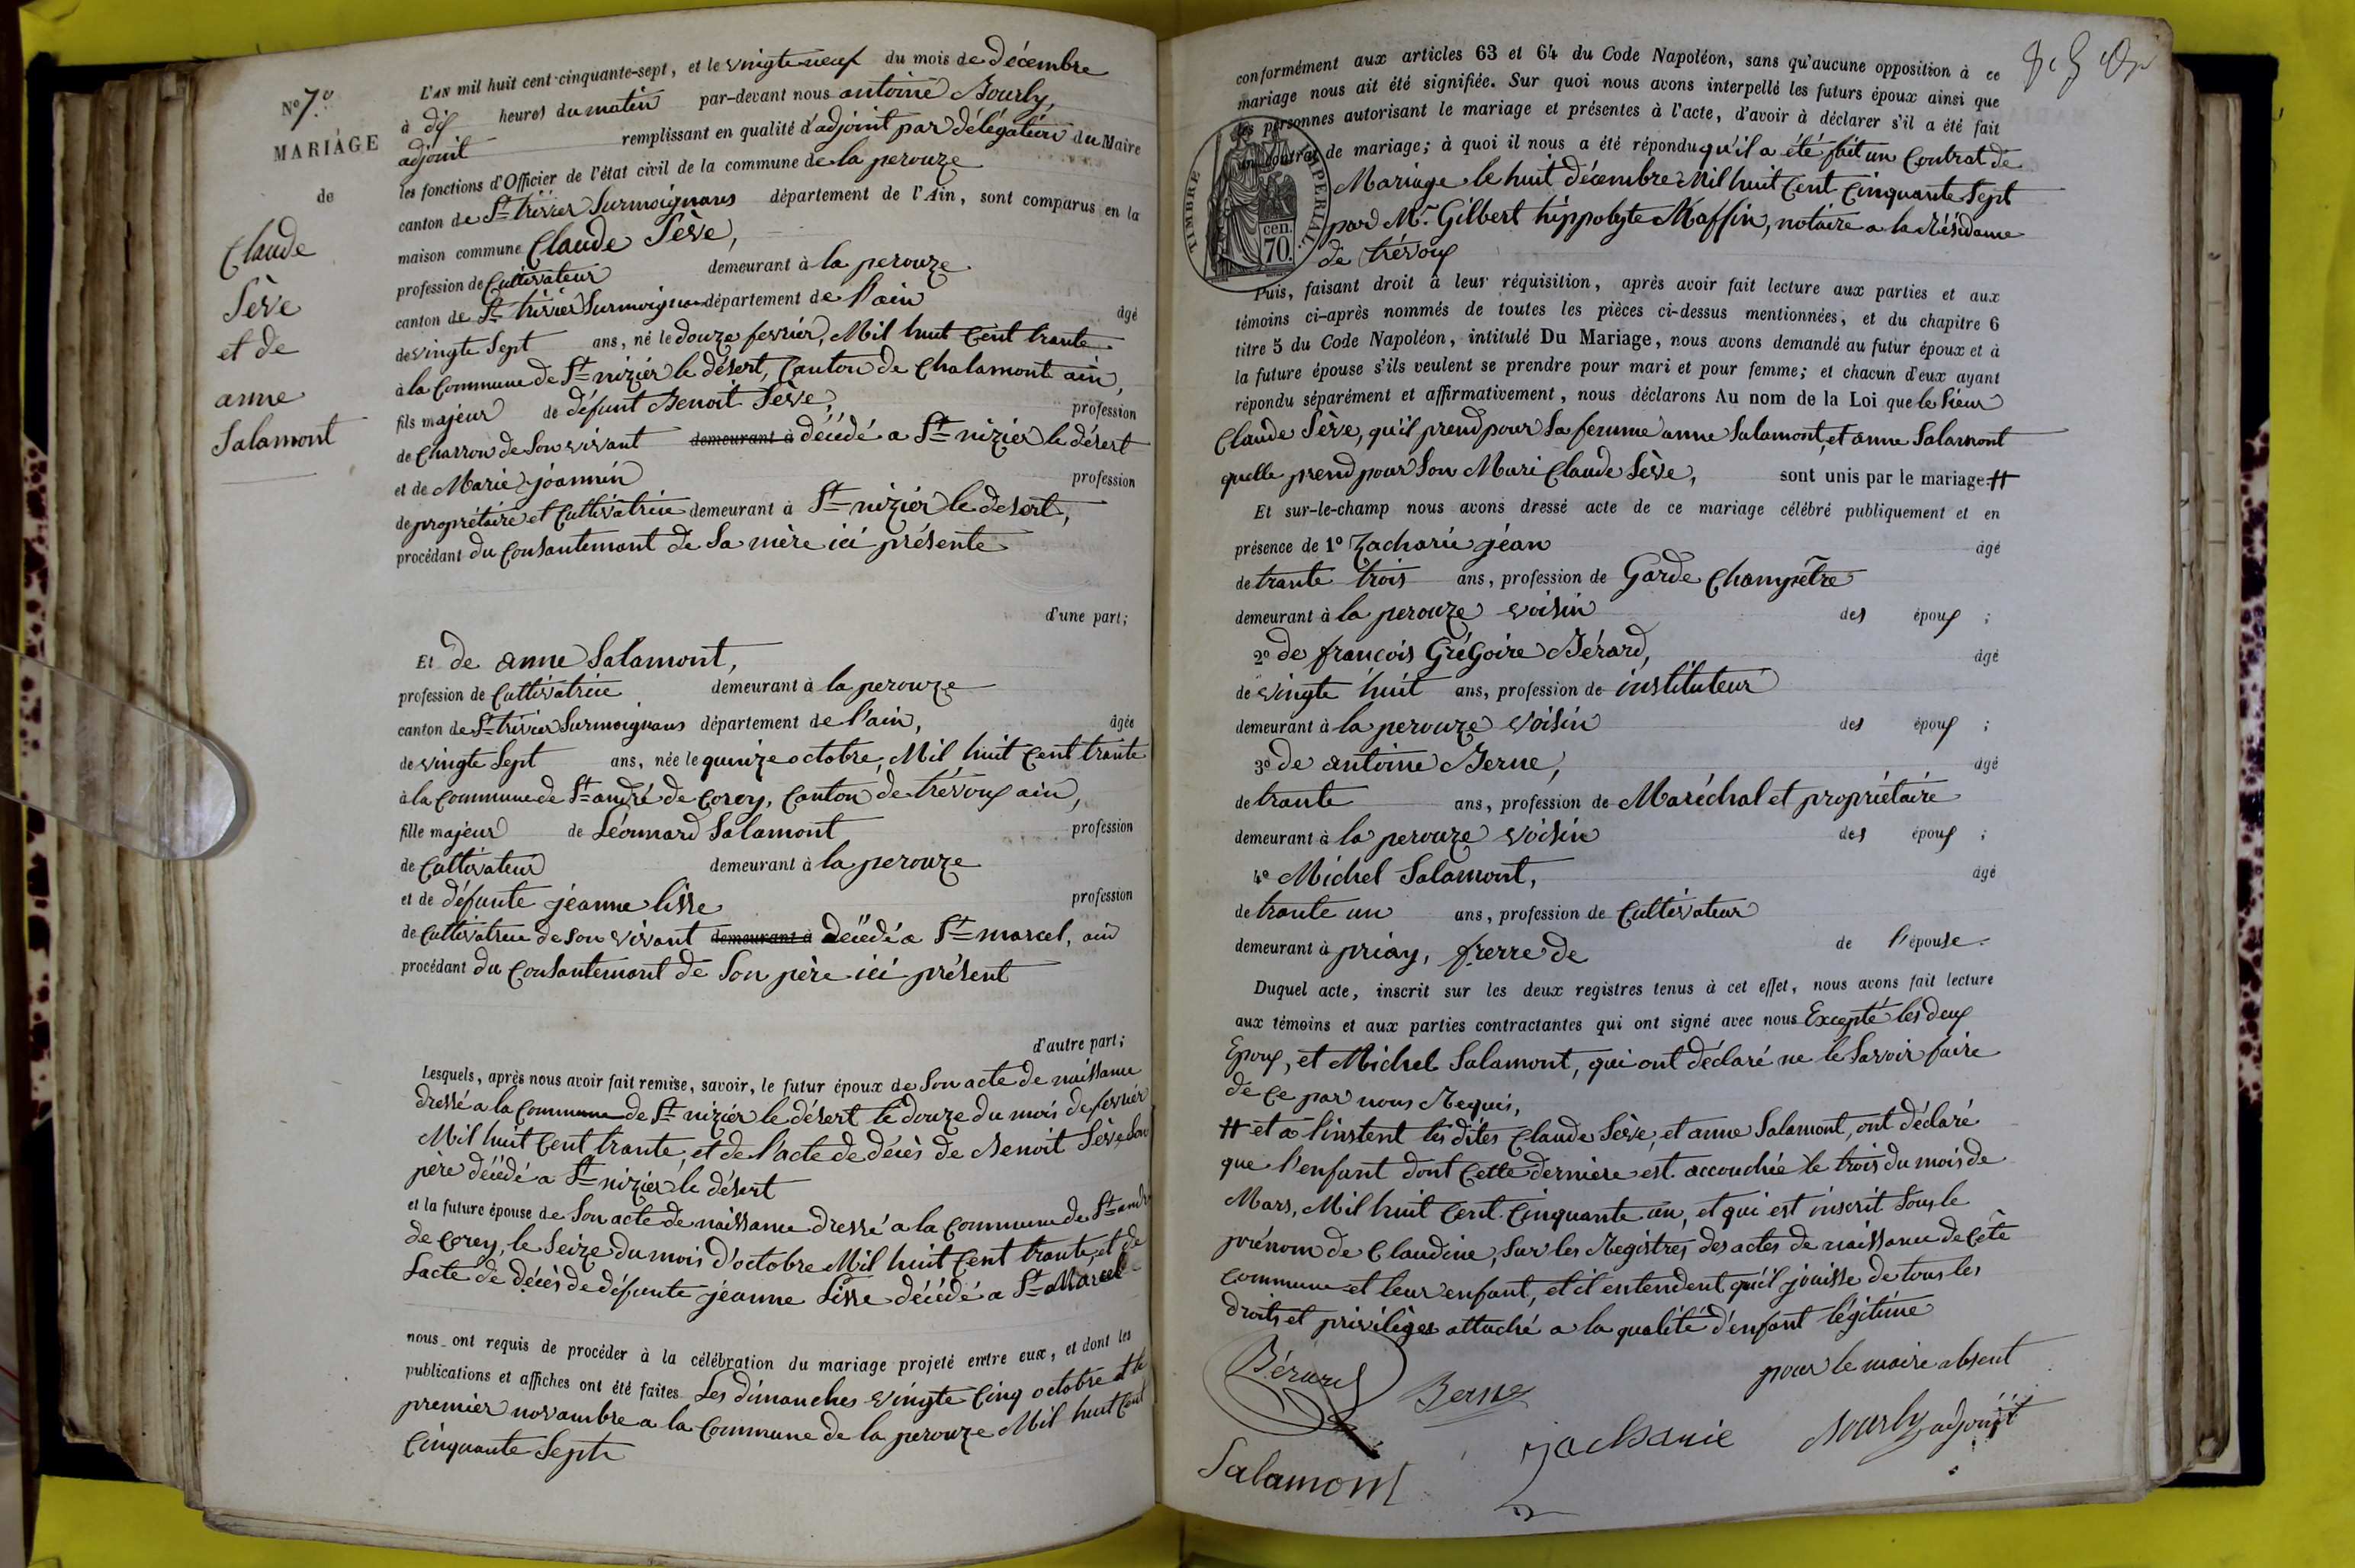 N° 7.e
MARIAGE
de
Claude
Sève
et de
anne
Salamont
L'AN mil huit cent cinquante-sept, et le vingte neuf du mois de décembre
à dix heures du matin par-devant nous antoine Bourly,
adjoint remplissant en qualité d'adjoint par délégation du Maire
les fonctions d'Officier de l'état civil de la commune de la perouze
canton de St trivier Surmoignans département de l'Ain, sont comparus en la
maison commune Claude Sève,
profession de Cultivateur demeurant à la perouze
canton de St trivier Surmoignans département de l'ain âgé
de vingte Sept ans, né le douze fevrier, Mil huit Cent trante
à la Commune de St nizier le désert, Canton de Chalamont ain,
fils majeur de défunt Benoit Sève, profession
de Charron de Son vivant demeurant à décédé a St nizier le désert
et de Marie joannin profession
de propriétaire et Cultivatrice demeurant à St nizier le desert,
procédant du Consantemant de Sa mère ici présente
d'une part;
Et de anne Salamont,
profession de Cultivatrice demeurant à la perouze
canton de St trivier Surmoignans département de l'ain, âgée
de vingte Sept ans, née le quinze octobre, Mil huit Cent trante
à la Commune de St andré de Corcy, Canton de trévoux ain,
fille majeur de Léonnard Salamont profession
de Cultivateur demeurant à la perouze
et de défunte jéanne lisse profession
de Cultivatrice de Son vivant demeurant à décédé a St marcel, ain
procédant du Consantemant de Son père ici présent
d'autre part;
Lesquels, après nous avoir fait remise, savoir, le futur époux de Son acte de naissance
dressé a la Commune de St nizier le désert le douze du mois de fevrier
Mil huit Cent trante, et de l'acte de décès de Benoit Sève Son
père décédé a St nizier le désert
et la future épouse de Son acte de naissance dressé a la Commune de St andré
de Corcy, le Seize du mois d'octobre Mil huit Cent trante, et de
Lacte de décès de défunte jéanne Lisse décédé a St Marcel
nous ont requis de procéder à la célébration du mariage projeté entre eux, et dont les
publications et affiches ont été faites Les dimanches vingte Cinq octobre et le
premier novambre a la Commune de la perouze Mil huit Cent
Cinquante Sept
conformément aux articles 63 et 64 du Code Napoléon, sans qu'aucune opposition à ce
mariage nous ait été signifiée. Sur quoi nous avons interpellé les futurs époux ainsi que
les personnes autorisant le mariage et présentes à l'acte, d'avoir à déclarer s'il a été fait
un contrat de mariage; à quoi il nous a été répondu qu'il a été fait un Contrat de
Mariage le huit décembre Mil huit Cent Cinquante Sept
par Mr. Gilbert hippolyte Maffin, notaire a la résidance
de trévoux
TIMBRE IMPERIAL
cen.
70.
Puis, faisant droit à leur réquisition, après avoir fait lecture aux parties et aux
témoins ci-après nommés de toutes les pièces ci-dessus mentionnées, et du chapitre 6
titre 5 du Code Napoléon, intitulé Du Mariage, nous avons demandé au futur époux et à
la future épouse s'ils veulent se prendre pour mari et pour femme; et chacun d'eux ayant
répondu séparément et affirmativement, nous déclarons Au nom de la Loi que le Sieur
Claude Sève, qu'il prend pour Sa femme anne Salamont, et anne Salamont
quelle prend pour Son Mari Claude Sève, sont unis par le mariage #
Et sur-le-champ nous avons dressé acte de ce mariage célébré publiquement et en
présence de 1° Zacharie jéan âgé
de trante trois ans, profession de Garde Champêtre
demeurant à la perouze voisin des époux ;
2° de françois Grégoire Bérard, âgé
de vingte huit ans, profession de instituteur
demeurant à la perouze voisin des époux ;
3° de antoine Berne, âgé
de trante ans, profession de Maréchal et propriétaire
demeurant à la perouze voisin des époux ;
4° Michel Salamont, âgé
de trante un ans, profession de Cultivateur
demeurant à priay, frerre de de l'épouse.
Duquel acte, inscrit sur les deux registres tenus à cet effet, nous avons fait lecture
aux témoins et aux parties contractantes qui ont signé avec nous Excepté les deux
Epoux, et Michel Salamont, qui ont déclaré ne le Savoir faire
de Ce par nous Requis,
# et a l'instent les dites Claude Sève, et anne Salamont, ont déclaré
que l'enfant dont Cette dernière est accouchée le trois du mois de
Mars, Mil huit Cent Cinquante un, et qui est inscrit Sous le
prénom de Claudine, Sur les Registres des actes de naissance de Cete
Commune et leur enfant, et il entendent qu'il jouisse de tous les
droits et privilèges attaché a la qualité d'enfant légitime
pour le maire absent
Bérard Berne
Zacharie Bourly adjoint
Salamont